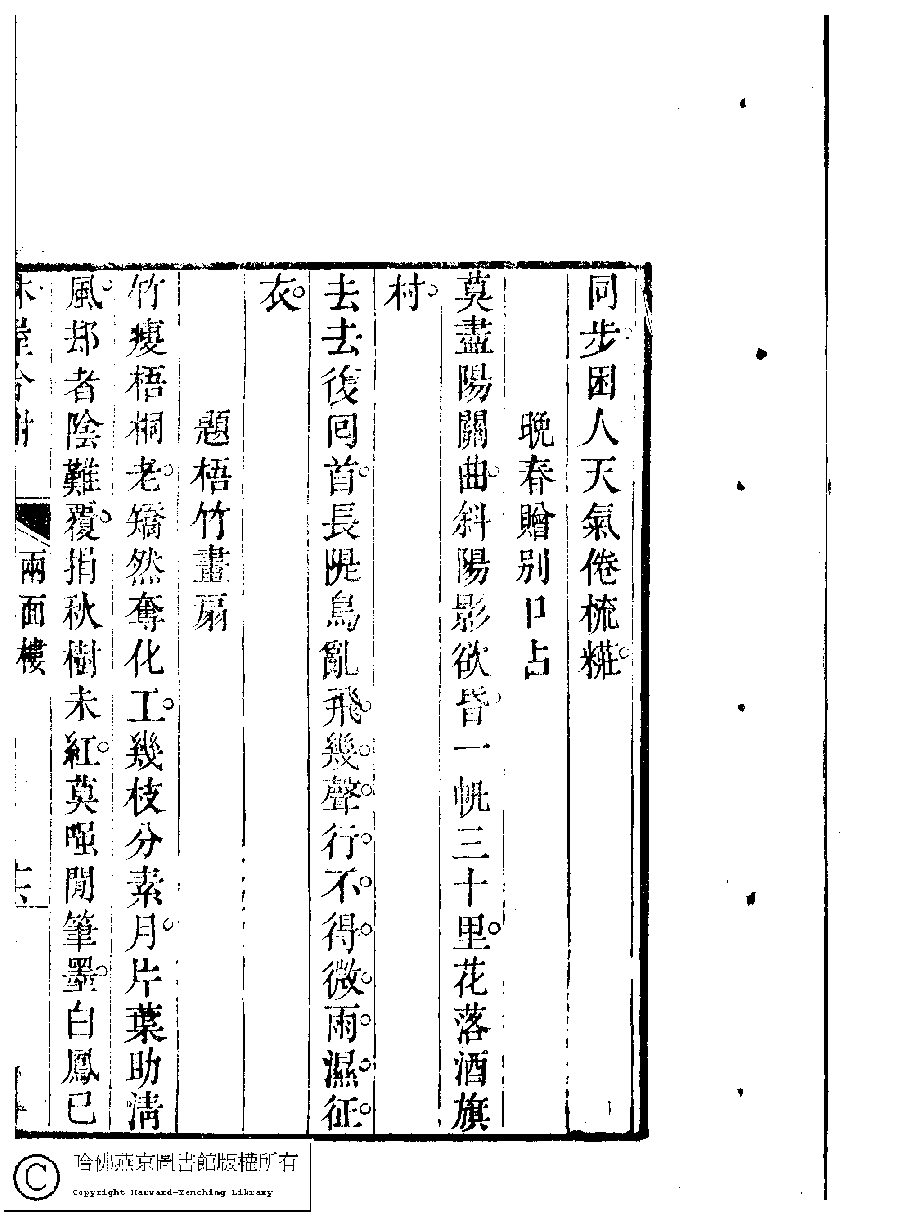 同步困人天氣倦梳糚
晚春贈別口占
莫盡陽關曲斜陽影欲昏一帆三十里花落酒旗
村
去去復回首長隄鳥亂飛幾聲行不得微雨濕征
衣
題梧竹畫扇
竹瘦梧桐老矯然奪化工幾枝分素月片葉助清
風却者陰難覆描秋樹未紅莫嗤閒筆墨白鳳已
兩面樓
哈佛燕京圖書館版權所有
Copyright Harvard-Yenching Library